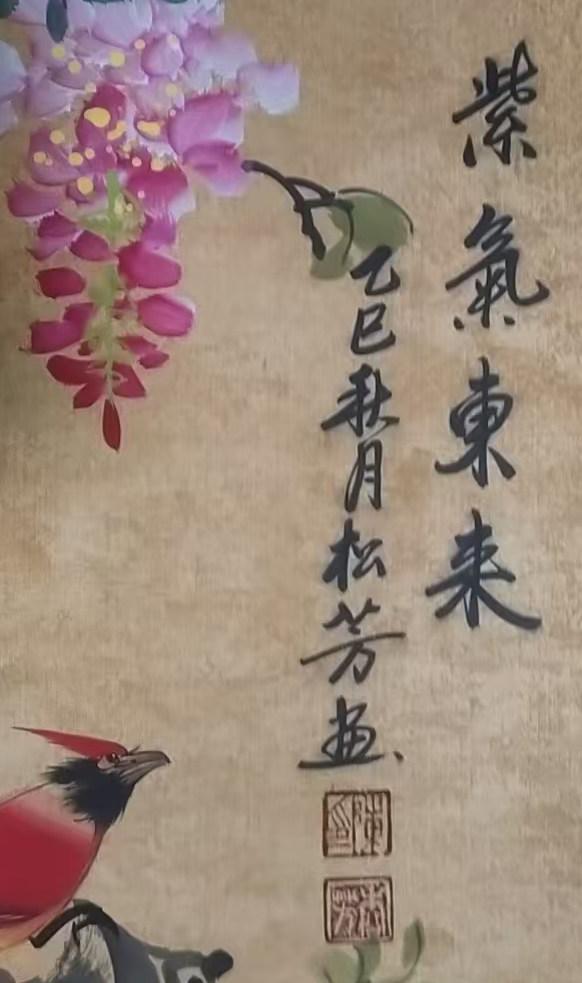 紫氣東来
乙巳秋月松芳画